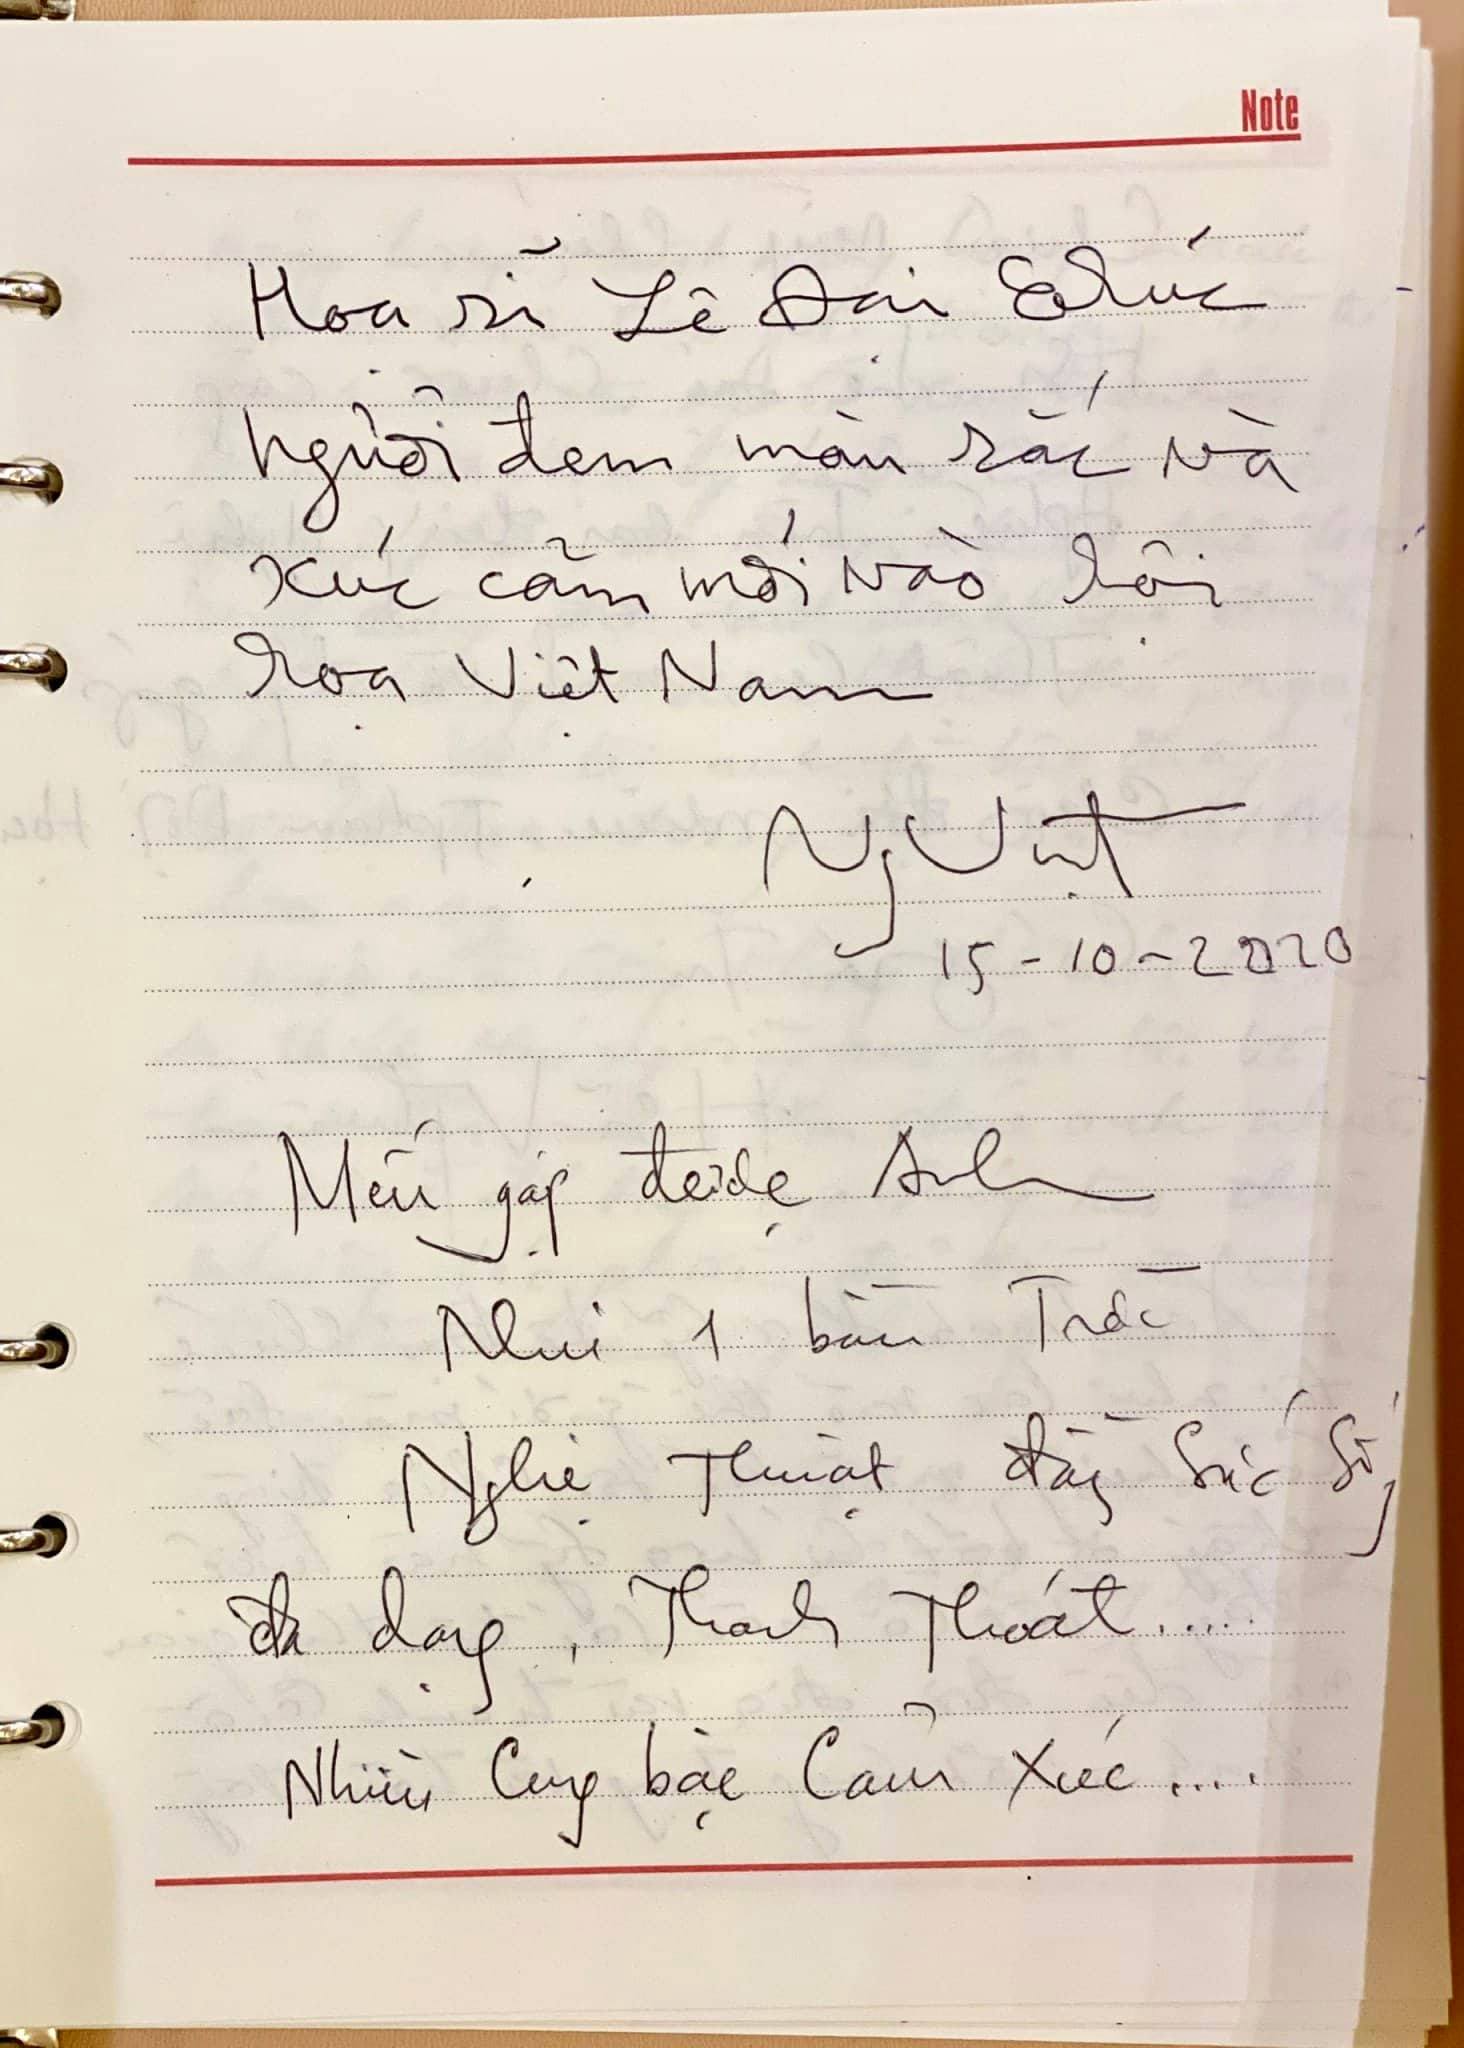 Note
Họa sĩ Lê Đại Chúc
người đem màu sắc và
xúc cảm mới vào hội
họa Việt Nam
Ng Việt
15-10-2020
Mến gặp được Anh
Như 1 bàn Trà
Nghệ Thuật đầy Sức Sống
đa dạng, Thanh Thoát.....
Nhiều Cung bậc Cảm Xúc....